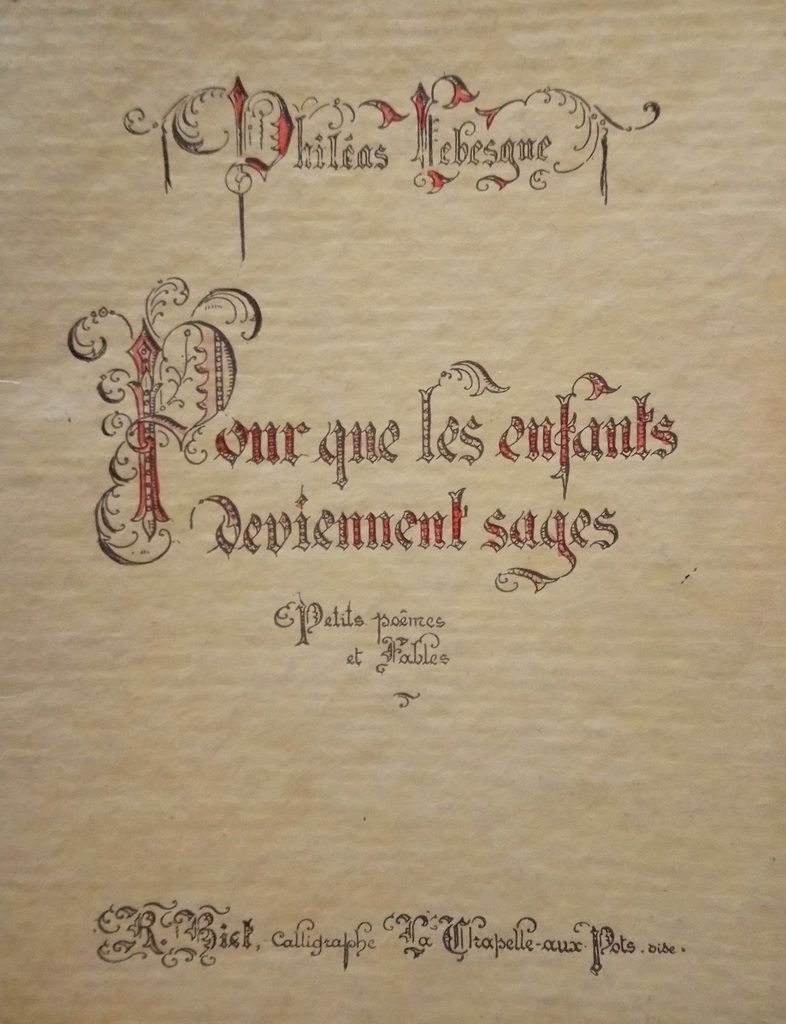 Philéas Lebesgue
Pour que les enfants
deviennent sages
Petits poèmes
et Fables
R. Biet, Calligraphe La Chapelle-aux-Pots. oise.